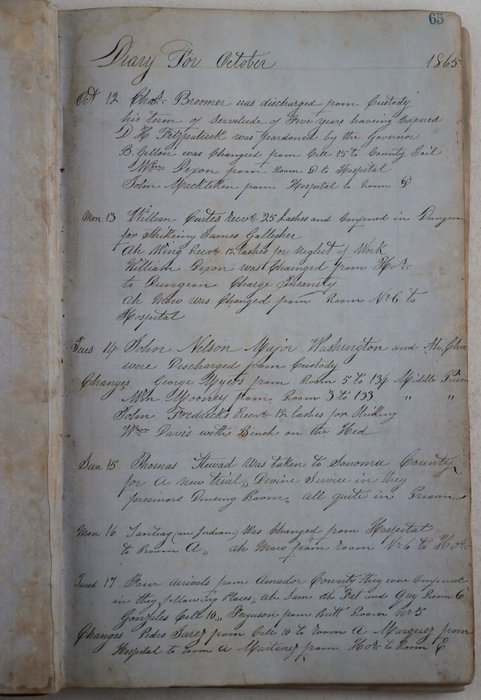 65
Diary For October 1865
Oct 12 Chas. Broomer was discharged from Custody
his term of Servitude of Five Years having Expired
D H Fitzpatrick was Pardoned by the Governor
B. Gellon was Changed from Cell 15 to County Jail
Wm Dixon from Room D to Hospital
John from Hospital to Room D
Mon 13 William Curtes Recvd 25 Lashes and Confined in Dungeon
for Strikeing James Gallagher
Ah Wing Recvd 12 lashes for Neglect of Work
William Dixon was Chainged from Hos.
to Dungeon Charge Insanity
Ah Mow was Changed from Room No 6 to
Hospital
Tues 14 John Nelson Major Washington and Ah Chu
were Discharged from Custody
Changes George Myers from Room 5 to 134 Middle Prison
Wm Mooney from Room 3 to 133 " "
John Fredricks Recvd 12 lashes for Striking
Wm Davis with Bench on the Hed
Sun 15 Thomas was taken to Sonoma County
for A New trial, Devine Service in they
presinors Dineing Room, all quite in Prison
Mon 16 Santiag (an Indian) Was Changed from Hospital
to Room A,, Ah Mow from room No 6 to Hos.
Tues 17 Four arivels from Amador County they ware Confined
in they following Places,, Ah Sam Ah Fet and Guy Room 6
Gonzeles Cell 10,, Ferguson from Room No 5
Changes Pedro Surez from Cell 10 to room A Marquez from
Hospital to room A Martinez from Hos. to Room C